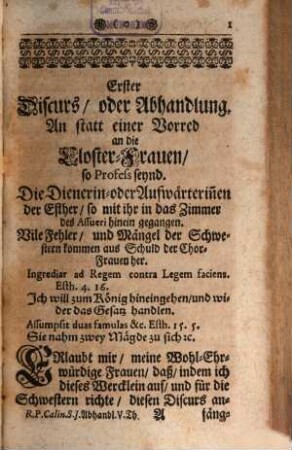 1
Erster
Discurs/ oder Abhandlung.
An statt einer Vorred
an die
Closter-Frauen/
so Profess seynd.
Die Dienerin-oder Aufwärterin̄en
der Esther/ so mit ihr in das Zimmer
des Assueri hinein gegangen.
Vile Fehler/ und Mängel der Schwe-
stern kommen aus Schuld der Chor-
Frauen her.
Ingrediar ad Regem contra Legem faciens.
Esth. 4. 16.
Ich will zum König hineingehen/und wi-
der das Gesatz handlen.
Assumpsit duas famulas &c. Esth. 15. 5.
Sie nahm zwey Mägde zu sich ꝛc.
ERlaubt mir/ meine Wohl-Ehr-
würdige Frauen/ daß/ indem ich
dieses Wercklein auf/ und für die
Schwestern richte/ diesen Discurs an-
R.P. Calin. S.J. Abhandl. V. Th. A fäng-